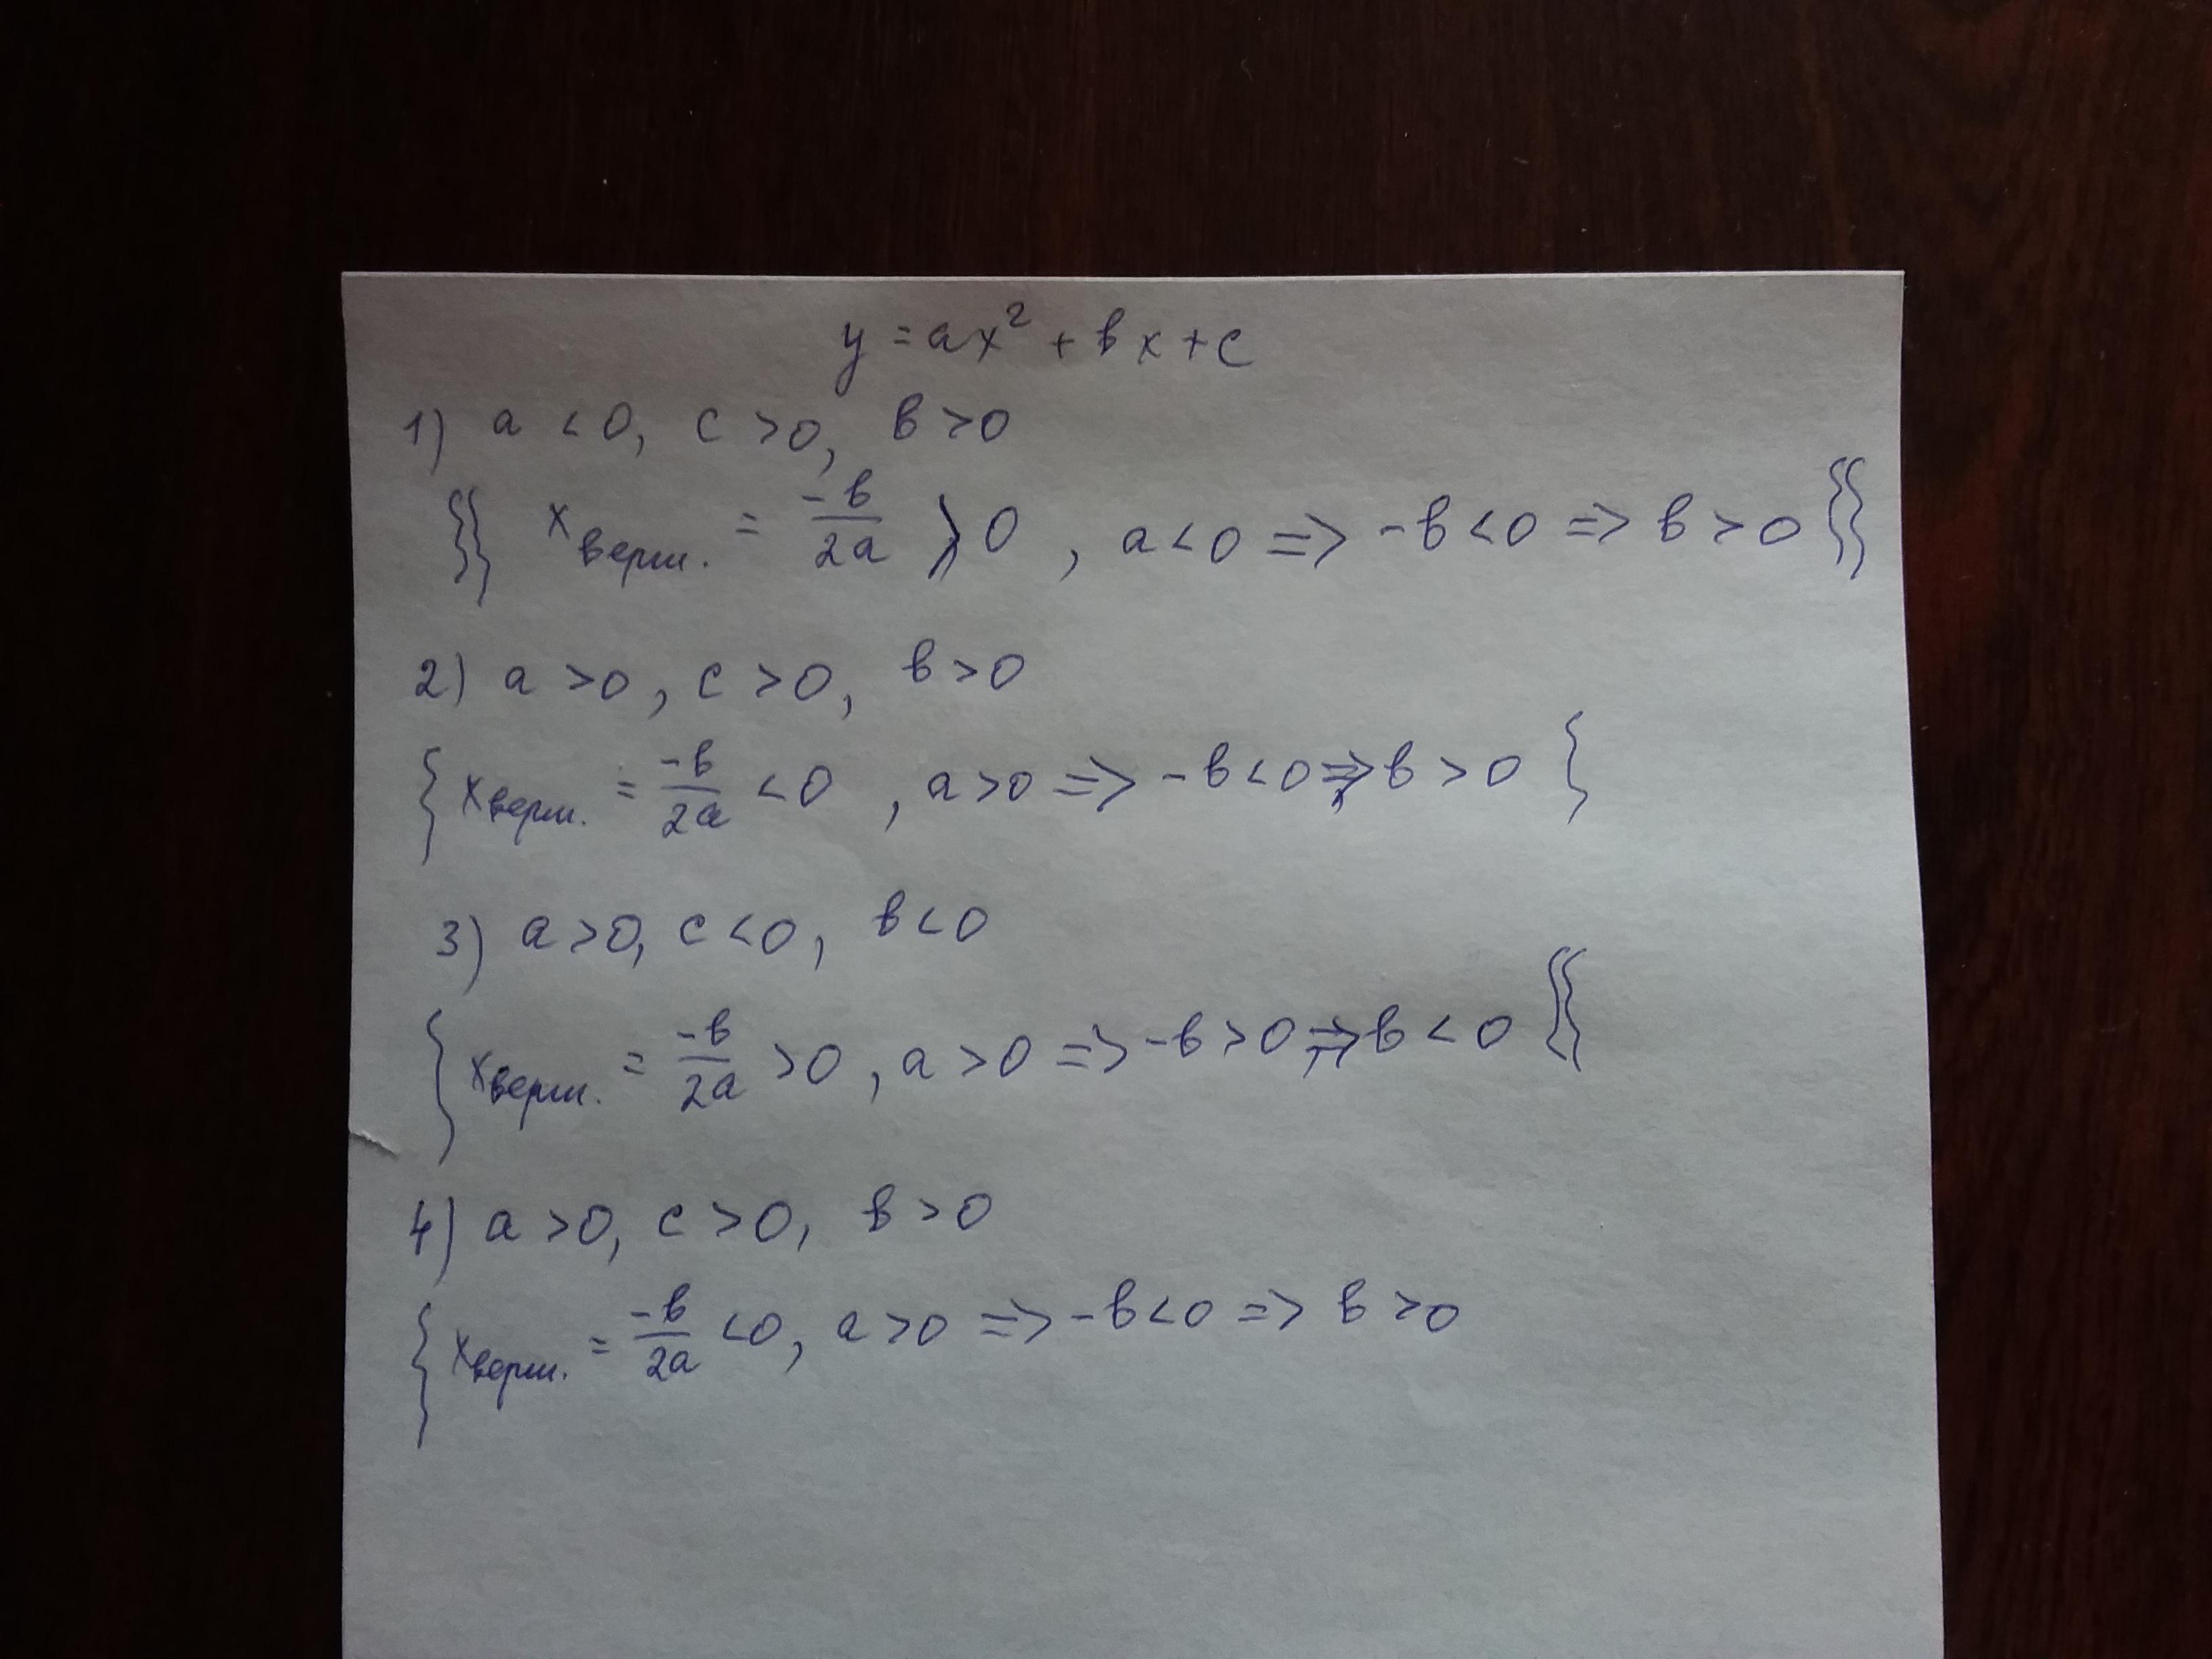 y = ax² + вx + c
1) a < 0, c > 0, в > 0
{{ xверш. = -в/2a > 0, a < 0 => -в < 0 => в > 0 }}
2) a > 0, c > 0, в > 0
{ xверш. = -в/2a < 0, a > 0 => -в < 0 => в > 0 }
3) a > 0, c < 0, в < 0
{ xверш. = -в/2a > 0, a > 0 => -в > 0 => в < 0 }}
4) a > 0, c > 0, в > 0
{ xверш. = -в/2a < 0, a > 0 => -в < 0 => в > 0